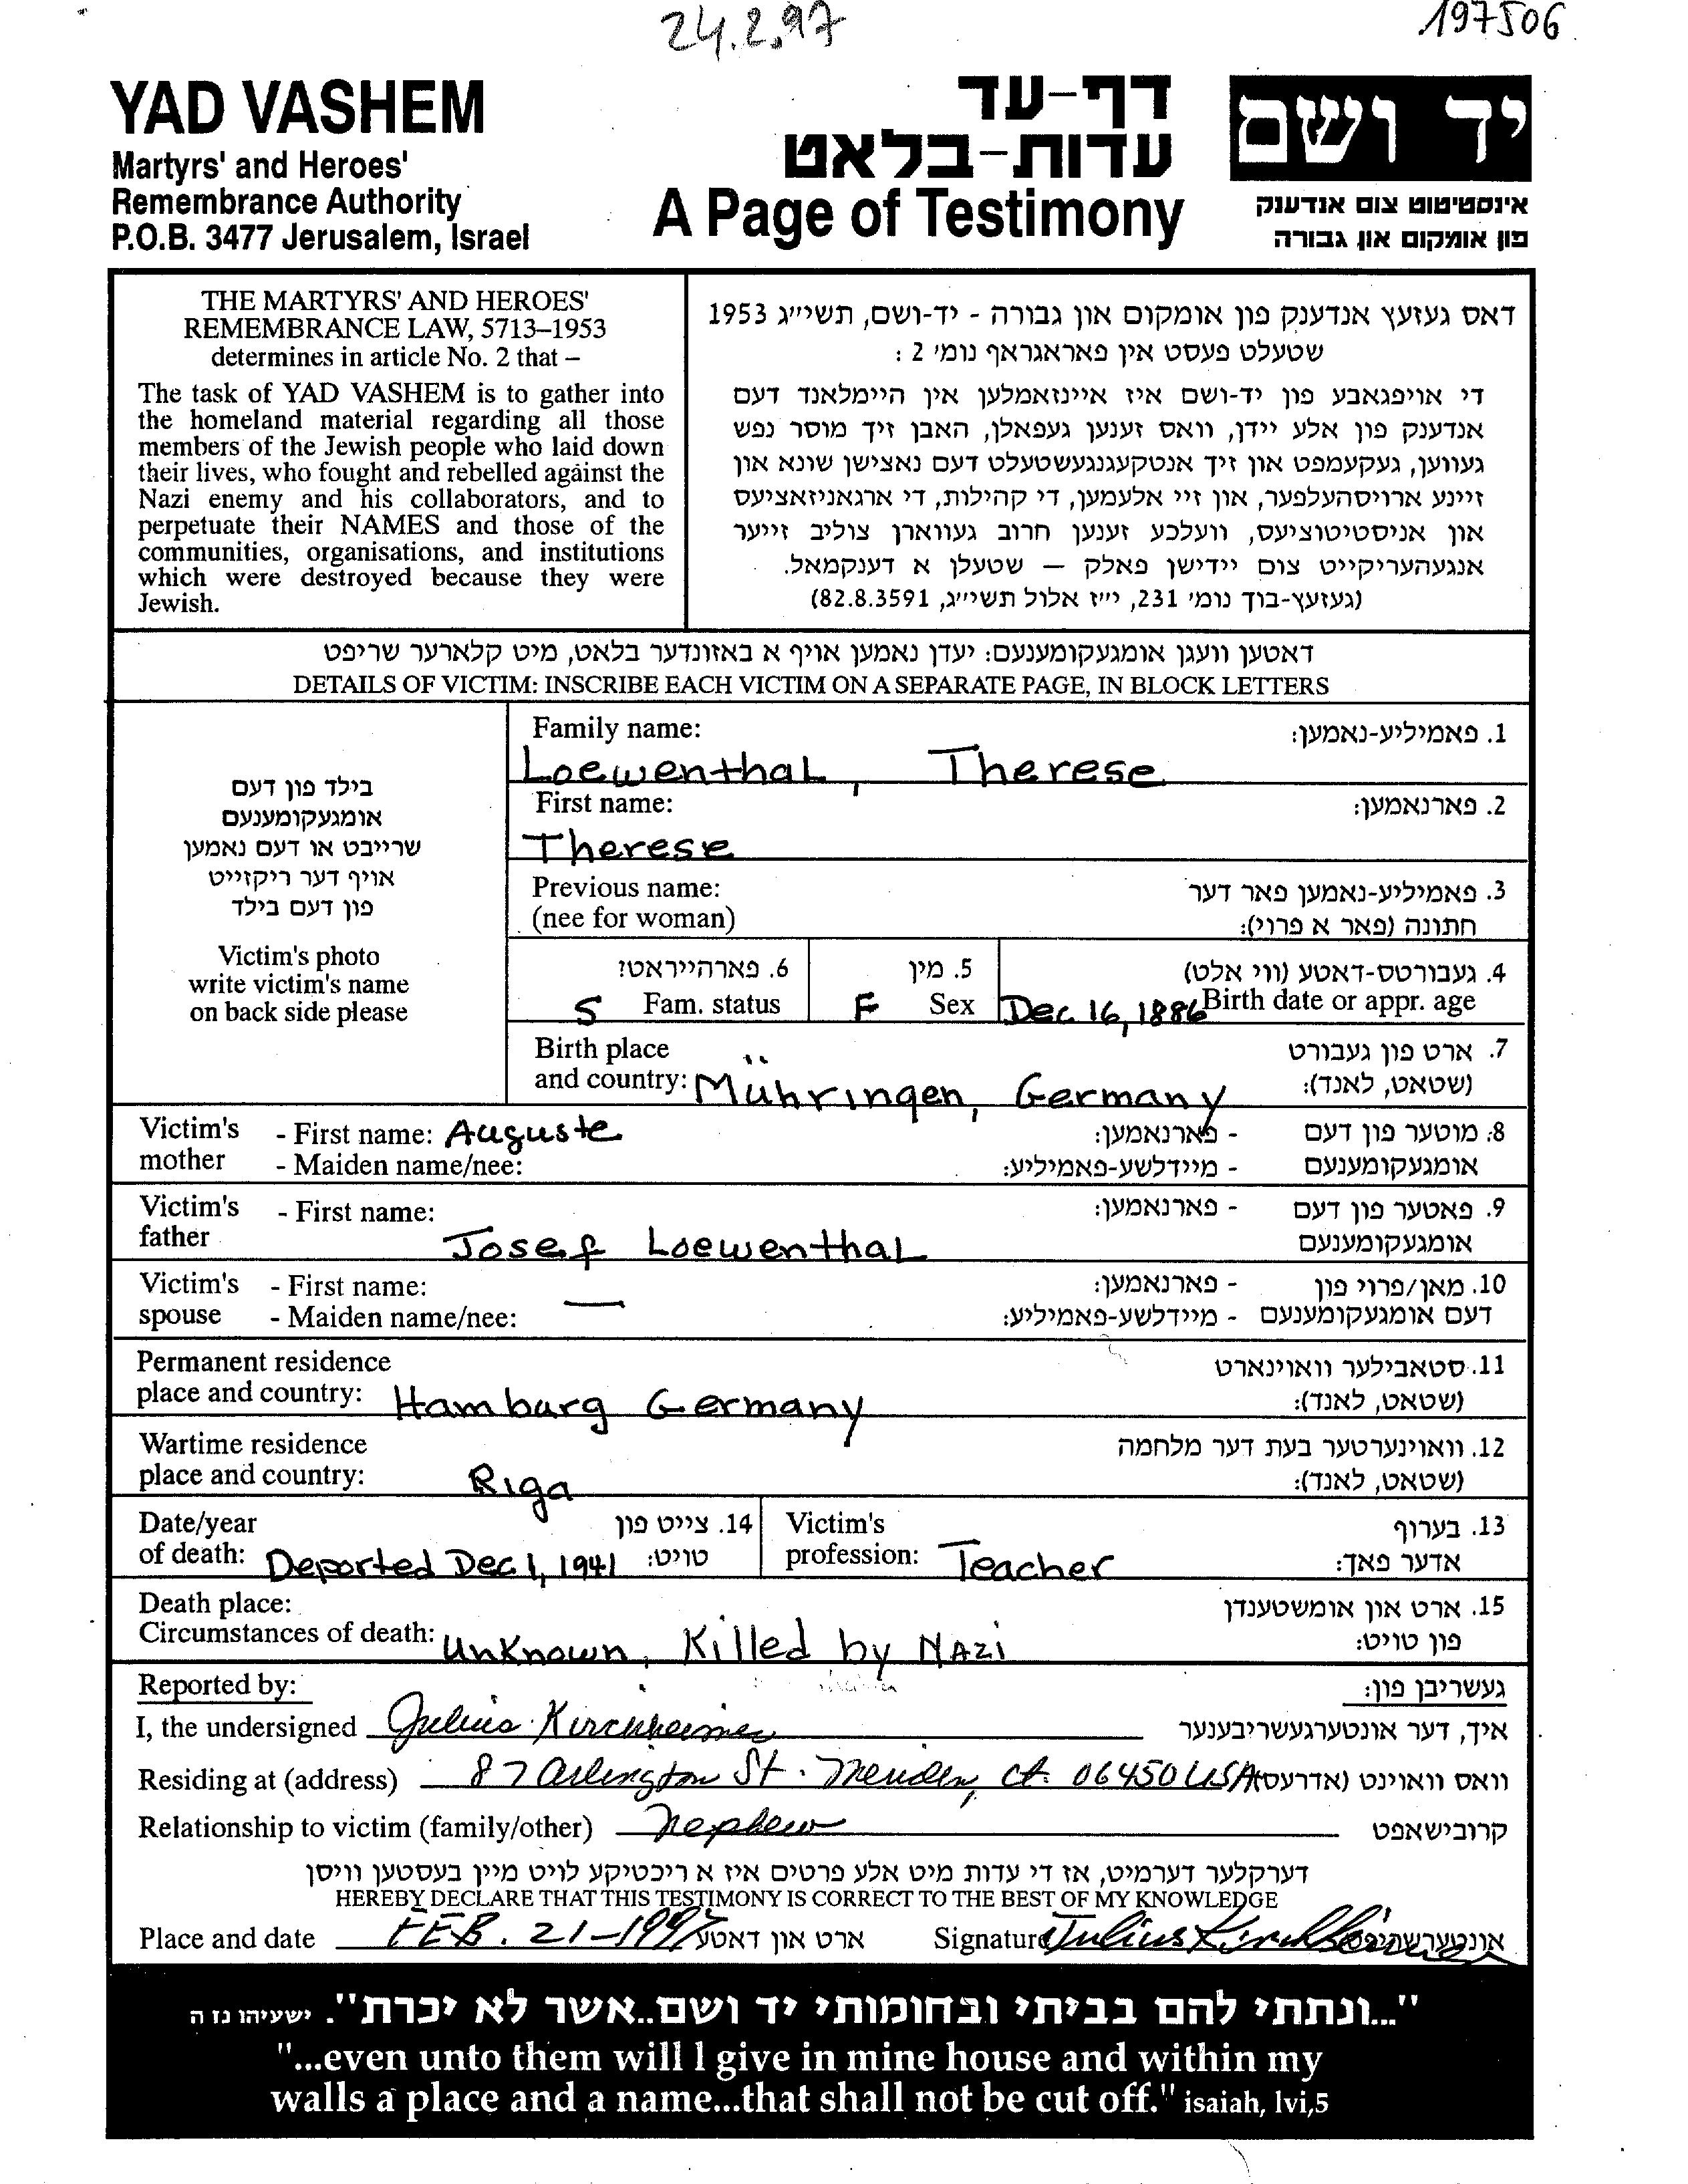 24.2.97
197506
YAD VASHEM
Martyrs' and Heroes'
Remembrance Authority
P.O.B. 3477 Jerusalem, Israel
דף-עד
עדות-בלאט
A Page of Testimony
יד ושם
אינסטיטוט צום אנדענק
פון אומקום און גבורה
THE MARTYRS' AND HEROES'
REMEMBRANCE LAW, 5713–1953
determines in article No. 2 that –
The task of YAD VASHEM is to gather into
the homeland material regarding all those
members of the Jewish people who laid down
their lives, who fought and rebelled against the
Nazi enemy and his collaborators, and to
perpetuate their NAMES and those of the
communities, organisations, and institutions
which were destroyed because they were
Jewish.
דאס געזעץ אנדענק פון אומקום און גבורה - יד-ושם, תשי״ג 1953
שטעלט פעסט אין פאראגראף נומ׳ 2 :
די אויפגאבע פון יד-ושם איז איינזאמלען אין היימלאנד דעם
אנדענק פון אלע יידן, וואס זענען געפאלן, האבן זיך מוסר נפש
געווען, געקעמפט און זיך אנטקעגנגעשטעלט דעם נאצישן שונא און
זיינע ארויסהעלפער, און זיי אלעמען, די קהילות, די ארגאניזאציעס
און אניסטיטוציעס, וועלכע זענען חרוב געווארן צוליב זייער
אנגעהעריקייט צום יידישן פאלק – שטעלן א דענקמאל.
(געזעץ-בוך נומ׳ 231, י״ז אלול תשי״ג, 82.8.3591)
דאטען וועגן אומגעקומענעם: יעדן נאמען אויף א באזונדער בלאט, מיט קלארער שריפט
DETAILS OF VICTIM: INSCRIBE EACH VICTIM ON A SEPARATE PAGE, IN BLOCK LETTERS
בילד פון דעם
אומגעקומענעם
שרייבט או דעם נאמען
אויף דער ריקזייט
פון דעם בילד
Victim's photo
write victim's name
on back side please
Family name: 1. פאמיליע-נאמען:
Loewenthal, Therese
First name: 2. פארנאמען:
Therese
Previous name: 3. פאמיליע-נאמען פאר דער
(nee for woman) חתונה (פאר א פרוי):
6. פארהייראט? 5. מין 4. געבורטס-דאטע (ווי אלט)
S Fam. status F Sex Dec. 16, 1886 Birth date or appr. age
Birth place 7. ארט פון געבורט
and country: Mühringen, Germany (שטאט, לאנד):
Victim's - First name: Auguste - פארנאמען: 8. מוטער פון דעם
mother - Maiden name/nee: - מיידלשע-פאמיליע: אומגעקומענעם
Victim's - First name: - פארנאמען: 9. פאטער פון דעם
father Josef Loewenthal אומגעקומענעם
Victim's - First name: — - פארנאמען: 10. מאן/פרוי פון
spouse - Maiden name/nee: - מיידלשע-פאמיליע: דעם אומגעקומענעם
Permanent residence 11. סטאבילער וואוינארט
place and country: Hamburg Germany (שטאט, לאנד):
Wartime residence 12. וואוינערטער בעת דער מלחמה
place and country: Riga (שטאט, לאנד):
Date/year 14. צייט פון Victim's 13. בערוף
of death: Deported Dec 1, 1941 טויט: profession: Teacher אדער פאך:
Death place: 15. ארט און אומשטענדן
Circumstances of death: Unknown, Killed by NAZi פון טויט:
Reported by: געשריבן פון:
I, the undersigned Julius Kirchheimer איך, דער אונטערגעשריבענער
Residing at (address) 87 Arlington St. Meriden, Ct. 06450 USA וואס וואוינט (אדרעס)
Relationship to victim (family/other) Nephew קרובישאפט
דערקלער דערמיט, אז די עדות מיט אלע פרטים איז א ריכטיקע לויט מיין בעסטען וויסן
HEREBY DECLARE THAT THIS TESTIMONY IS CORRECT TO THE BEST OF MY KNOWLEDGE
Place and date FEB. 21-1997 ארט און דאטע Signature Julius Kirchheimer אונטערשריפט
"...ונתתי להם בביתי ובחומותי יד ושם..אשר לא יכרת". ישעיהו נז ה
"...even unto them will I give in mine house and within my
walls a place and a name...that shall not be cut off." isaiah, lvi,5